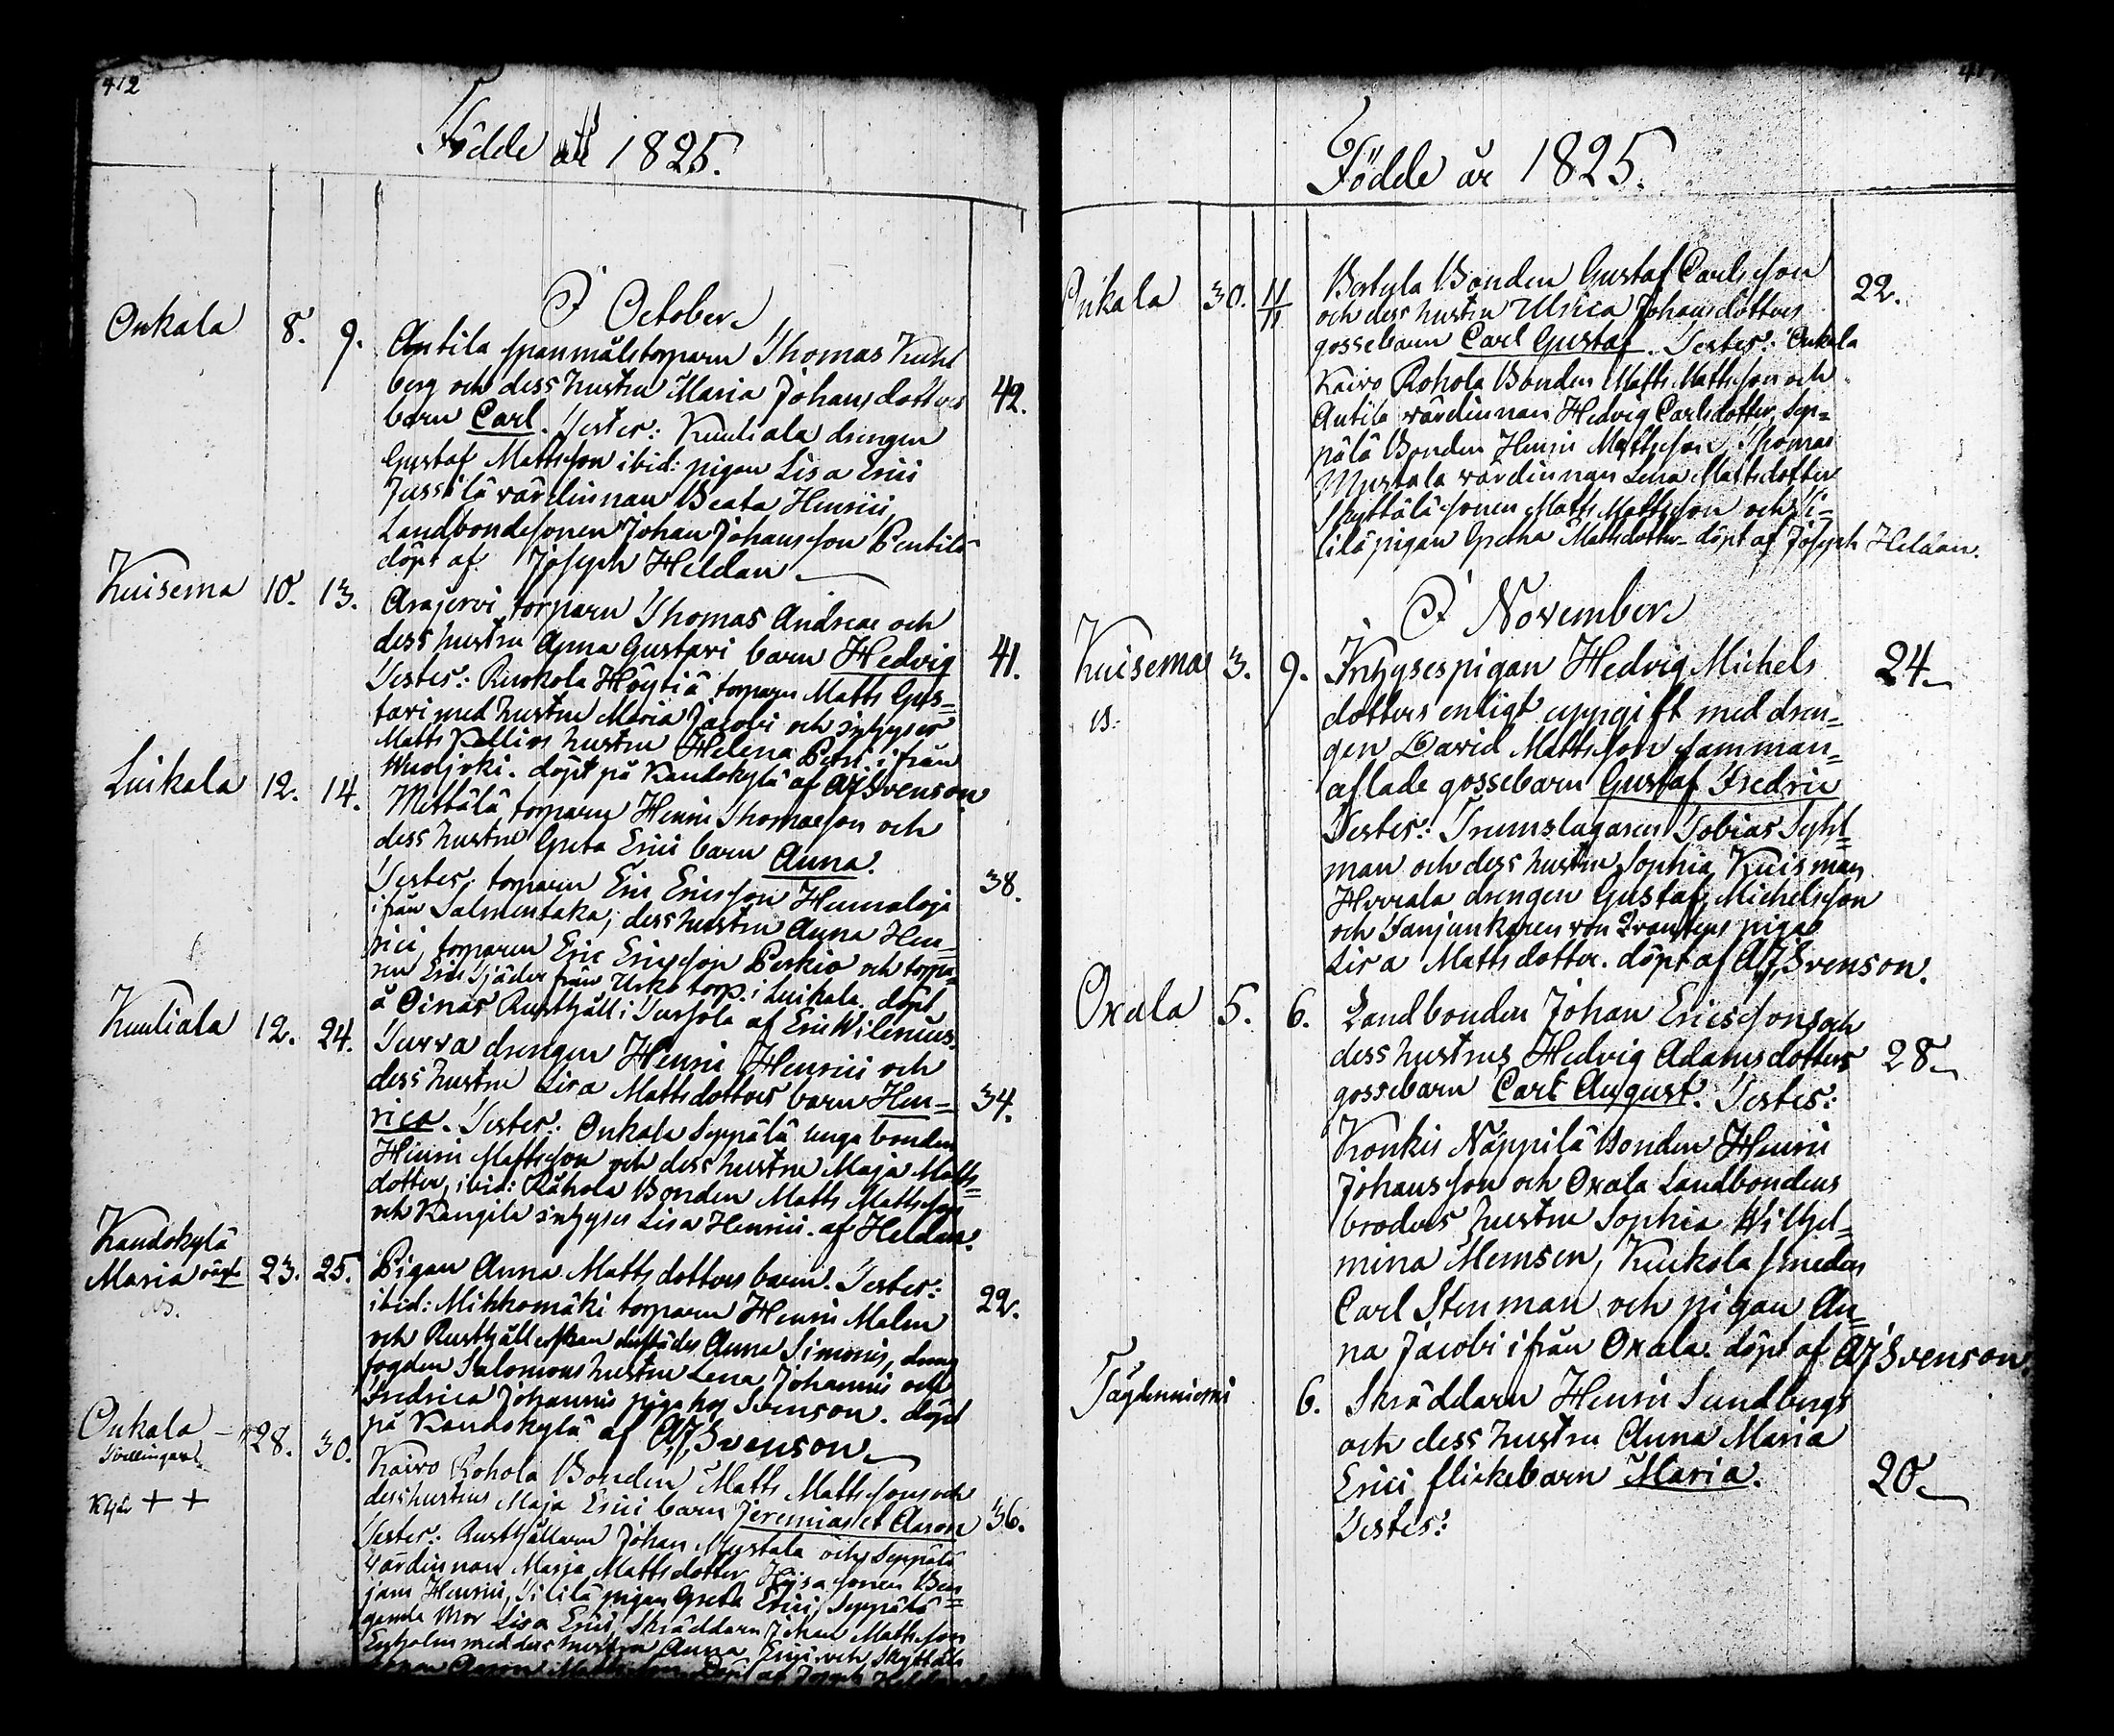 412
Födde år 1825.
I October
Onkala 8. 9. Antila spanmålstorparn Thomas Kuhl
berg och dess hustru Maria Johansdotters 42.
barn Carl. Testes: Kuuliala drengen
Gustaf Mattsson ibid: pigan Lisa Erici
Jussilä värdinnan Beata Henrici,
Landbondesonen Johan Johansson Pentilä
döpt af Joseph Heldan
Kuisema 10. 13. Arajervi torparn Thomas Andreae och
dess hustru Anna Gustavi barn Hedvig 41.
Testes: Ruokola Höytiä torparn Matts Gus=
tavi med hustru Maria Jacobi och inhyses
Matts Pellios hustru Helena Petri ifrån
Wuoljoki. döpt på Kandokylä af AJSvenson
Luikala 12. 14. Mettälä torparn Henric Thomasson och
dess hustru Greta Erici barn Anna. 38.
Testes: torparn Eric Ericsson Humaloja
ifrån Salmentaka; dess hustru Anna Hen=
rici, torparen Eric Ericsson Perkiö och torpa=
ren Eric Tjäder från Usko torp i Luikala. döpt
å Oinas Rusthåll i Turhola af Eric Wilenius.
Kuuliala 12. 24. Turra drengen Henric Henrici och
dess hustru Lisa Mattsdotters barn Hen= 34.
rica. Testes: Onkala Seppälä unga bonden
Henric Mattsson och dess hustru Maja Matts=
dotter, ibid: Råhola Bonden Matts Mattsson
och Kangila inhyses Lisa Henrici. af Heldan.
Kandokylä
Maria oägt 23. 25. Pigan Anna Matts dotters barn. Testes: 22.
ibid: Mikkomäki torparn Henric Malm
och Rusthållerskan Anna Simonis, dreng
fogden Salomons hustru Lena Johannis och
Fredrica Johannis piga hos Svenson. döpt
på Kandokylä af AJSvenson
Onkala 28. 30. Kaivo Rohola Bonden Matts Mattssons och
Tvillingar dess hustrus Maja Erici barn Jeremias et Aaron 36.
+ + Testes: Rusthållarn Johan Mustala och Seppälä
värdinnan Marja Mattsdotter, Hojsa sonen Ben=
jam Henrici, Tililä pigan Greta Erici, Seppälä
gamla Mor Lisa Erici, Skräddarn Johan Mattsson
Enholm med dess hustru Anna Erici och Skyttälä
Födde år 1825.
Onkala 30. 11/11 Bertula Bonden Gustaf Carlsson 22.
och dess hustru Ulrica Johansdotters
gossebarn Carl Gustaf. Testes: Onkala
Kaivo Rohola Bonden Matts Mattsson och
Antila värdinnan Hedvig Carlsdotter, Sep=
pälä Bonden Henric Mattsson, Thomas
Mustala värdinnan Lena Mattsdotter
Skyttälä sonen Matts Mattsson och Ti=
lilä pigan Gretha Mattsdotter. döpt af Joseph Heldan.
I November
Kuisema 3. 9. Inhysespigan Hedvig Michels 24.
dotters enligt uppgift med dren=
gen David Mattsson samman=
aflade gossebarn Gustaf Fredric
Testes: Trumslagaren Tobias Syhl=
man och dess hustru Sophia Kuisman
Herrala drengen Gustaf Michelsson
och Fanjunkaren von Qvantens piga
Lisa Matts dotter. döpt af AJSvenson.
Oxala 5. 6. Landbonden Johan Ericssons och
dess hustrus Hedvig Adamsdotters 28.
gossebarn Carl August. Testes:
Konkis Näppilä Bonden Henric
Johansson och Oxala Landbondens
broders hustru Sophia Wilhel=
mina Memsen, Kuckola smeden
Carl Stenman och pigan An=
na Jacobi ifrån Oxala. döpt af AJSvenson.
6. Skräddarn Henric Sundbergs
och dess hustru Anna Maria
Erici flickebarn Maria. 20.
Testes: